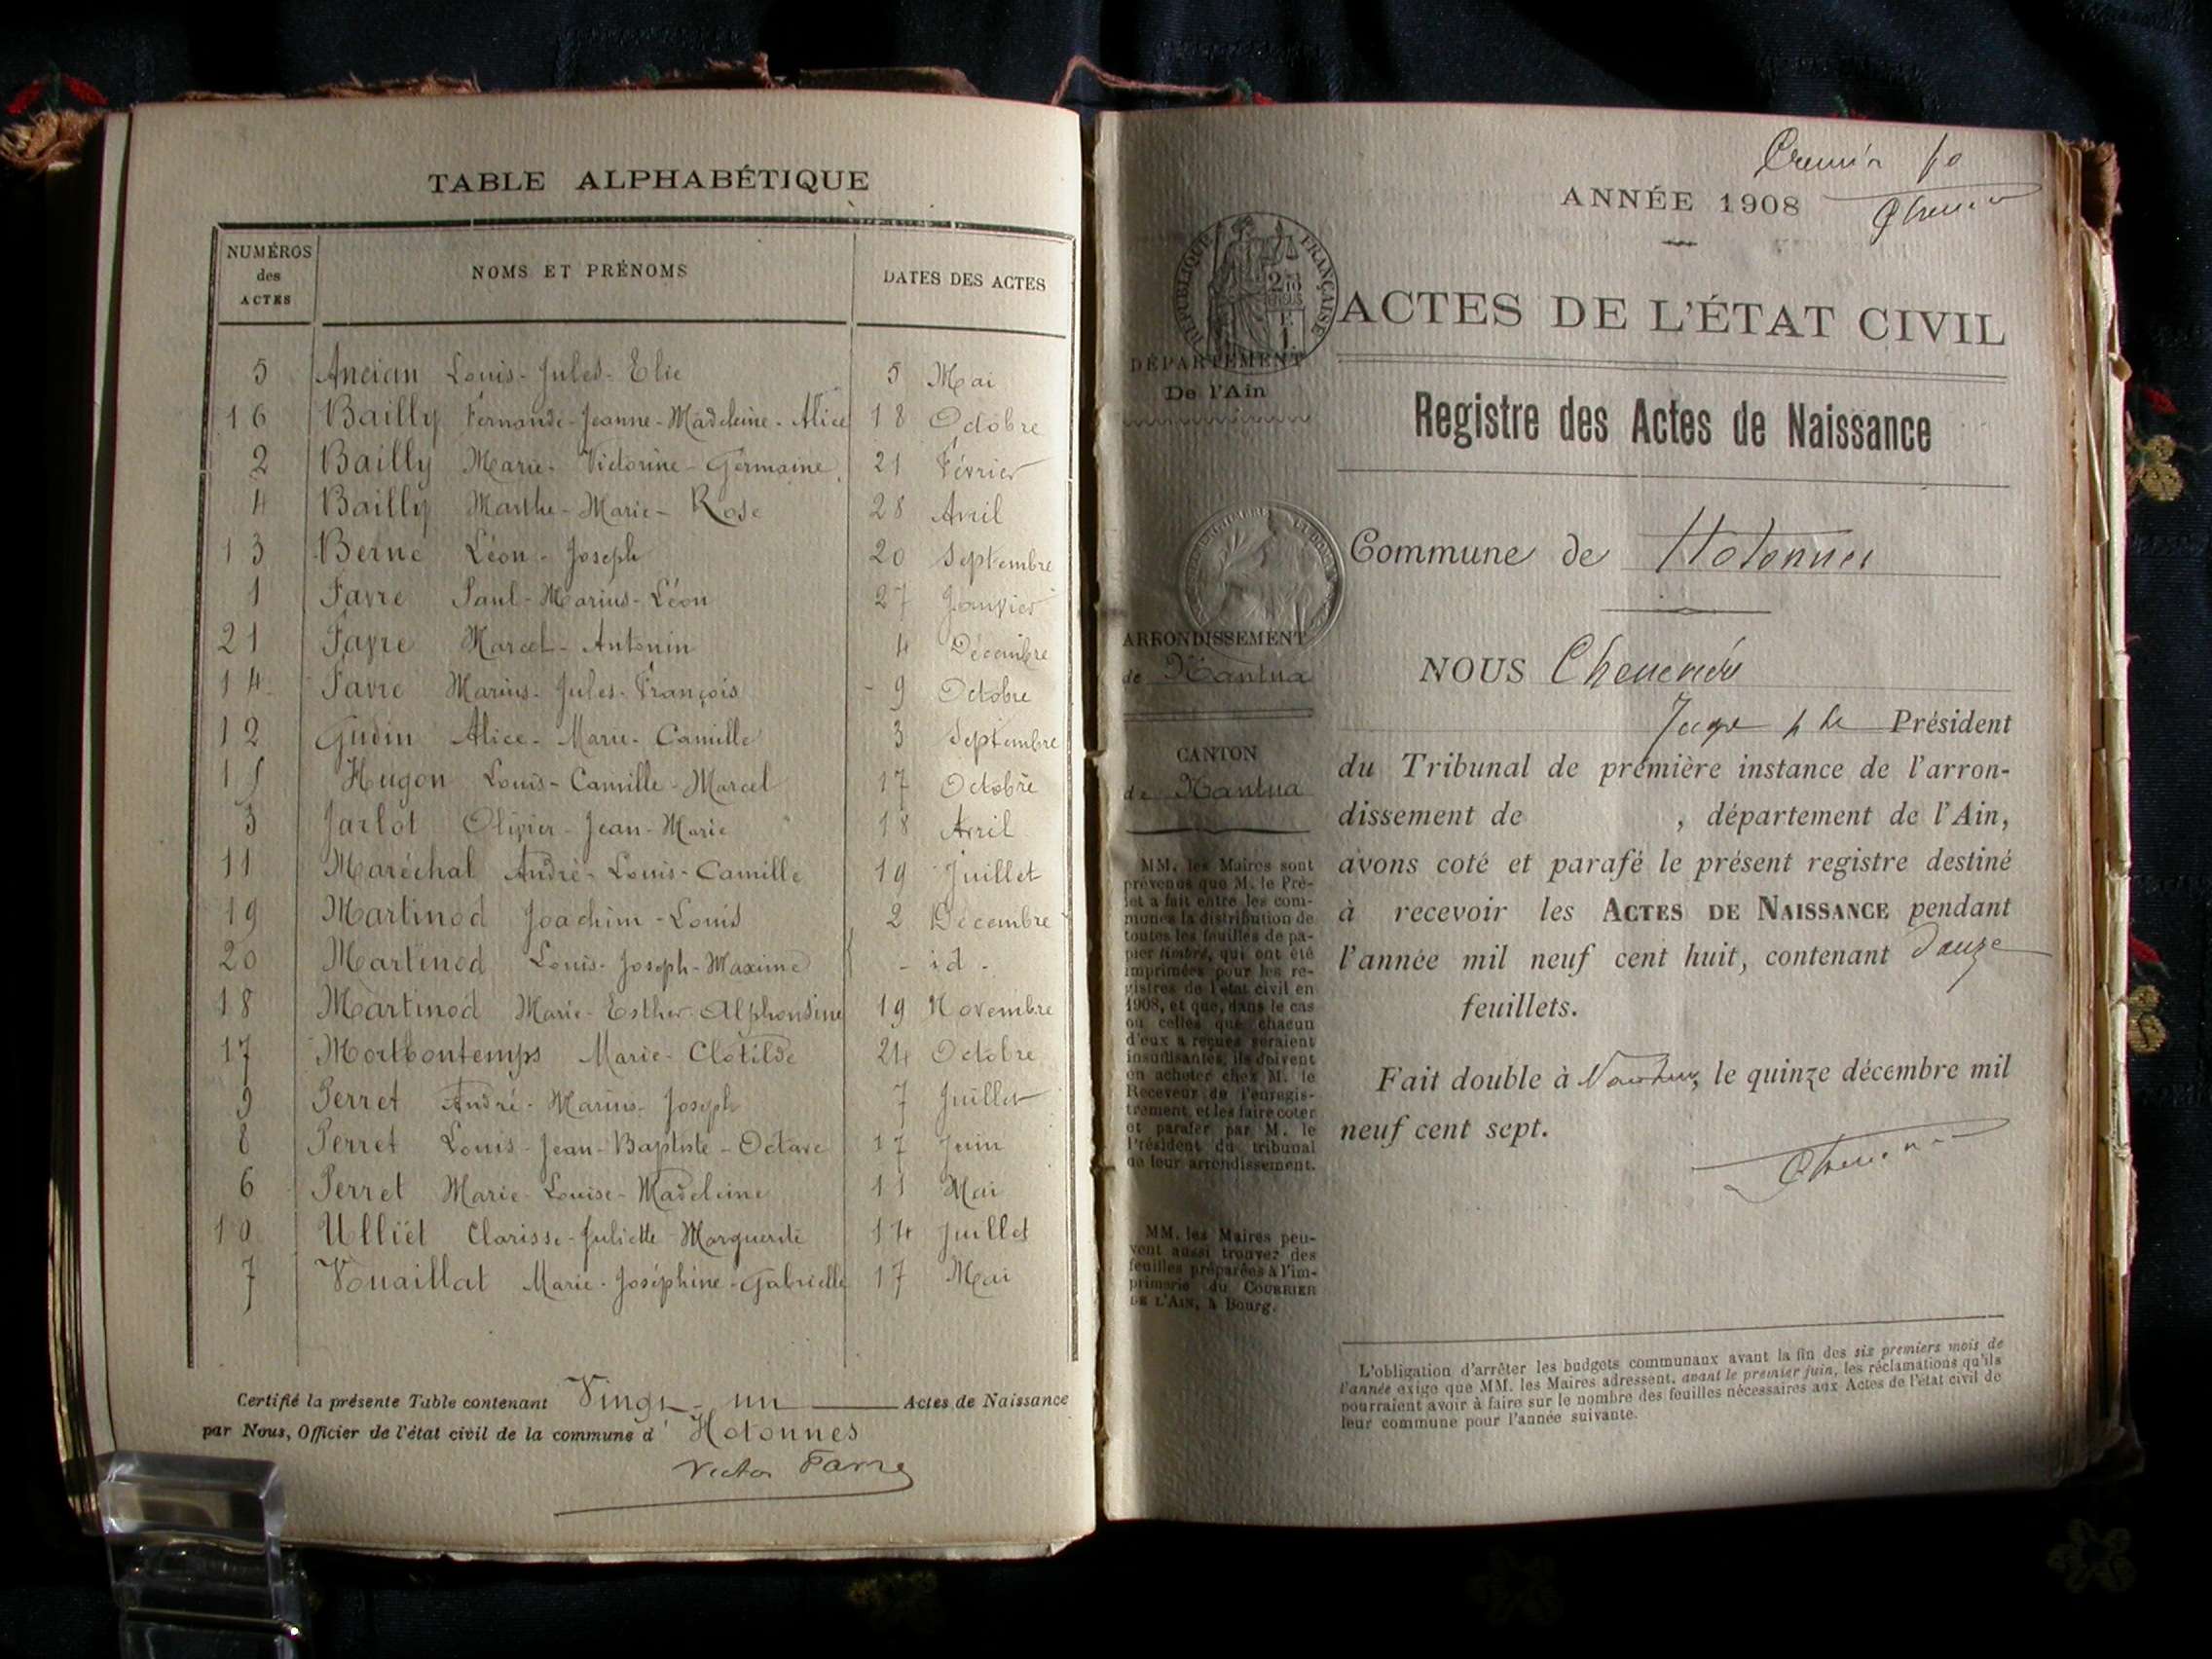 TABLE ALPHABÉTIQUE
NUMÉROS des ACTES NOMS ET PRÉNOMS DATES DES ACTES
5 Ancian Louis-Jules-Elie 5 Mai
16 Bailly Fernande-Jeanne-Madeleine-Alice 18 Octobre
2 Bailly Marie-Victorine-Germaine 21 Février
4 Bailly Marthe-Marie-Rose 28 Avril
13 Berne Léon-Joseph 20 Septembre
1 Favre Paul-Marius-Léon 27 Janvier
21 Favre Marcel-Antonin 4 Décembre
14 Favre Marius-Jules-François 9 Octobre
12 Gudin Alice-Marie-Camille 3 Septembre
15 Hugon Louis-Camille-Marcel 17 Octobre
3 Jarlot Olivier-Jean-Marie 18 Avril
11 Maréchal André-Louis-Camille 19 Juillet
19 Martinod Joachim-Louis 2 Décembre
20 Martinod Louis-Joseph-Maxime - id -
18 Martinod Marie-Esther-Alphonsine 19 Novembre
17 Mortbontemps Marie-Clotilde 24 Octobre
9 Perret André-Marius-Joseph 7 Juillet
8 Perret Louis-Jean-Baptiste-Octave 17 Juin
6 Perret Marie-Louise-Madeleine 11 Mai
10 Ulliet Clarisse-Juliette-Marguerite 14 Juillet
7 Vouaillat Marie-Joséphine-Gabrielle 17 Mai
Certifié la présente Table contenant Vingt-un Actes de Naissance
par Nous, Officier de l'état civil de la commune d' Hotonnes
Victor Favre
ANNÉE 1908
RÉPUBLIQUE FRANÇAISE
ACTES DE L'ÉTAT CIVIL
DÉPARTEMENT
De l'Ain
Registre des Actes de Naissance
Commune de Hotonnes
ARRONDISSEMENT
de Nantua
CANTON
de Nantua
MM. les Maires sont
prévenus que M. le Pré-
fet a fait entre les com-
munes la distribution de
toutes les feuilles de pa-
pier timbré, qui ont été
imprimées pour les re-
gistres de l'état civil en
1908, et que, dans le cas
où celles que chacun
d'eux a reçues seraient
insuffisantes, ils doivent
en acheter chez M. le
Receveur de l'enregis-
trement, et les faire coter
et parafer par M. le
Président du tribunal
de leur arrondissement.
MM. les Maires peu-
vent aussi trouver des
feuilles préparées à l'im-
primerie du COURRIER
DE L'AIN, à Bourg.
NOUS
Juge Président
du Tribunal de première instance de l'arron-
dissement de , département de l'Ain,
avons coté et parafé le présent registre destiné
à recevoir les ACTES DE NAISSANCE pendant
l'année mil neuf cent huit, contenant douze
feuillets.
Fait double à Nantua, le quinze décembre mil
neuf cent sept.
L'obligation d'arrêter les budgets communaux avant la fin des six premiers mois de
l'année exige que MM. les Maires adressent, avant le premier juin, les réclamations qu'ils
pourraient avoir à faire sur le nombre des feuilles nécessaires aux Actes de l'état civil de
leur commune pour l'année suivante.